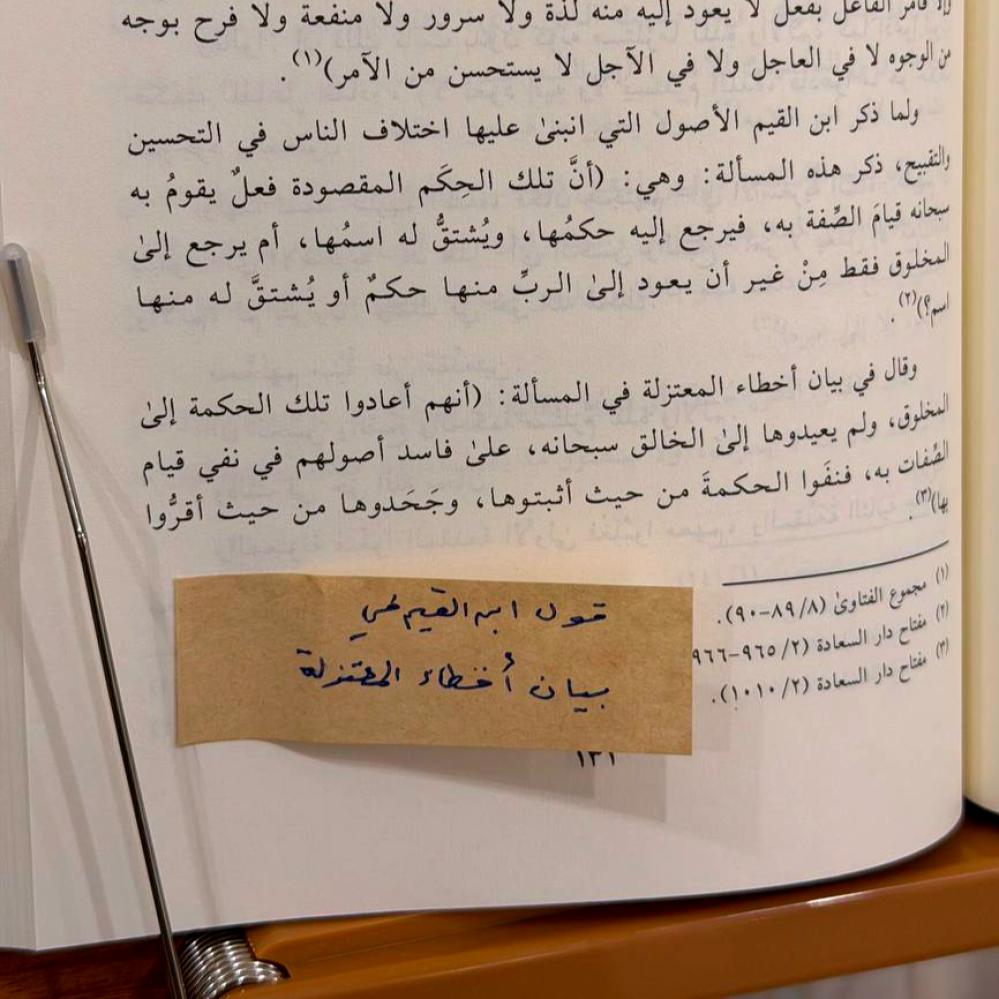 وإلا فأمر الفاعل بفعل لا يعود إليه منه لذة ولا سرور ولا منفعة ولا فرح بوجه
من الوجوه لا في العاجل ولا في الآجل لا يستحسن من الآمر)(١).
ولما ذكر ابن القيم الأصول التي انبنىٰ عليها اختلاف الناس في التحسين
والتقبيح، ذكر هذه المسألة: وهي: (أنَّ تلك الحِكَم المقصودة فعلٌ يقومُ به
سبحانه قيامَ الصِّفة به، فيرجع إليه حكمُها، ويُشتقُّ له اسمُها، أم يرجع إلىٰ
المخلوق فقط مِنْ غير أن يعود إلىٰ الربِّ منها حكمٌ أو يُشتقَّ له منها
اسم؟)(٢).
وقال في بيان أخطاء المعتزلة في المسألة: (أنهم أعادوا تلك الحكمة إلىٰ
المخلوق، ولم يعيدوها إلىٰ الخالق سبحانه، علىٰ فاسد أصولهم في نفي قيام
الصِّفات به، فنفَوا الحكمةَ من حيث أثبتوها، وجَحَدوها من حيث أقرُّوا
بها)(٣).
(١) مجموع الفتاوىٰ (٨/ ٨٩-٩٠).
(٢) مفتاح دار السعادة (٢/ ٩٦٥-٩٦٦
(٣) مفتاح دار السعادة (٢/ ١٠١٠).
قول ابن القيم في
بيان أخطاء المعتزلة
١٣١